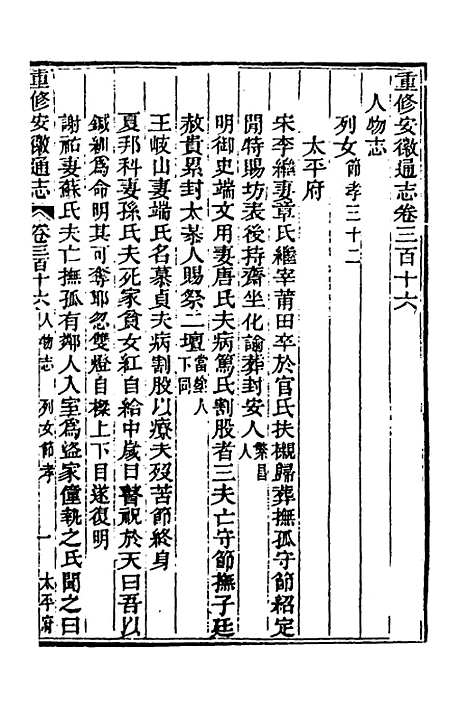 重修安徽通志卷三百十六
人物志
列女節孝三十二
太平府
宋李繼妻章氏繼宰莆田卒於官氏扶櫬歸葬撫孤守節紹定
間特賜坊表後持齋坐化諭葬封安人繁昌人
明御史端文用妻唐氏夫病篤氏割股者三夫亡守節撫子廷
赦貴累封太恭人賜祭二壇當塗人下同
王岐山妻端氏名慕貞夫病割股以療夫歿苦節終身
夏邦科妻孫氏夫死家貧女紅自給中歲目瞽祝於天曰吾以
鍼紉為命明其可奪耶忽雙燈自樑上下目遂復明
謝祐妻蘇氏夫亡撫孤有鄰人入室為盜家僮執之氏聞之曰
重修安徽通志 卷三百十六 人物志 列女節孝 一 太平府